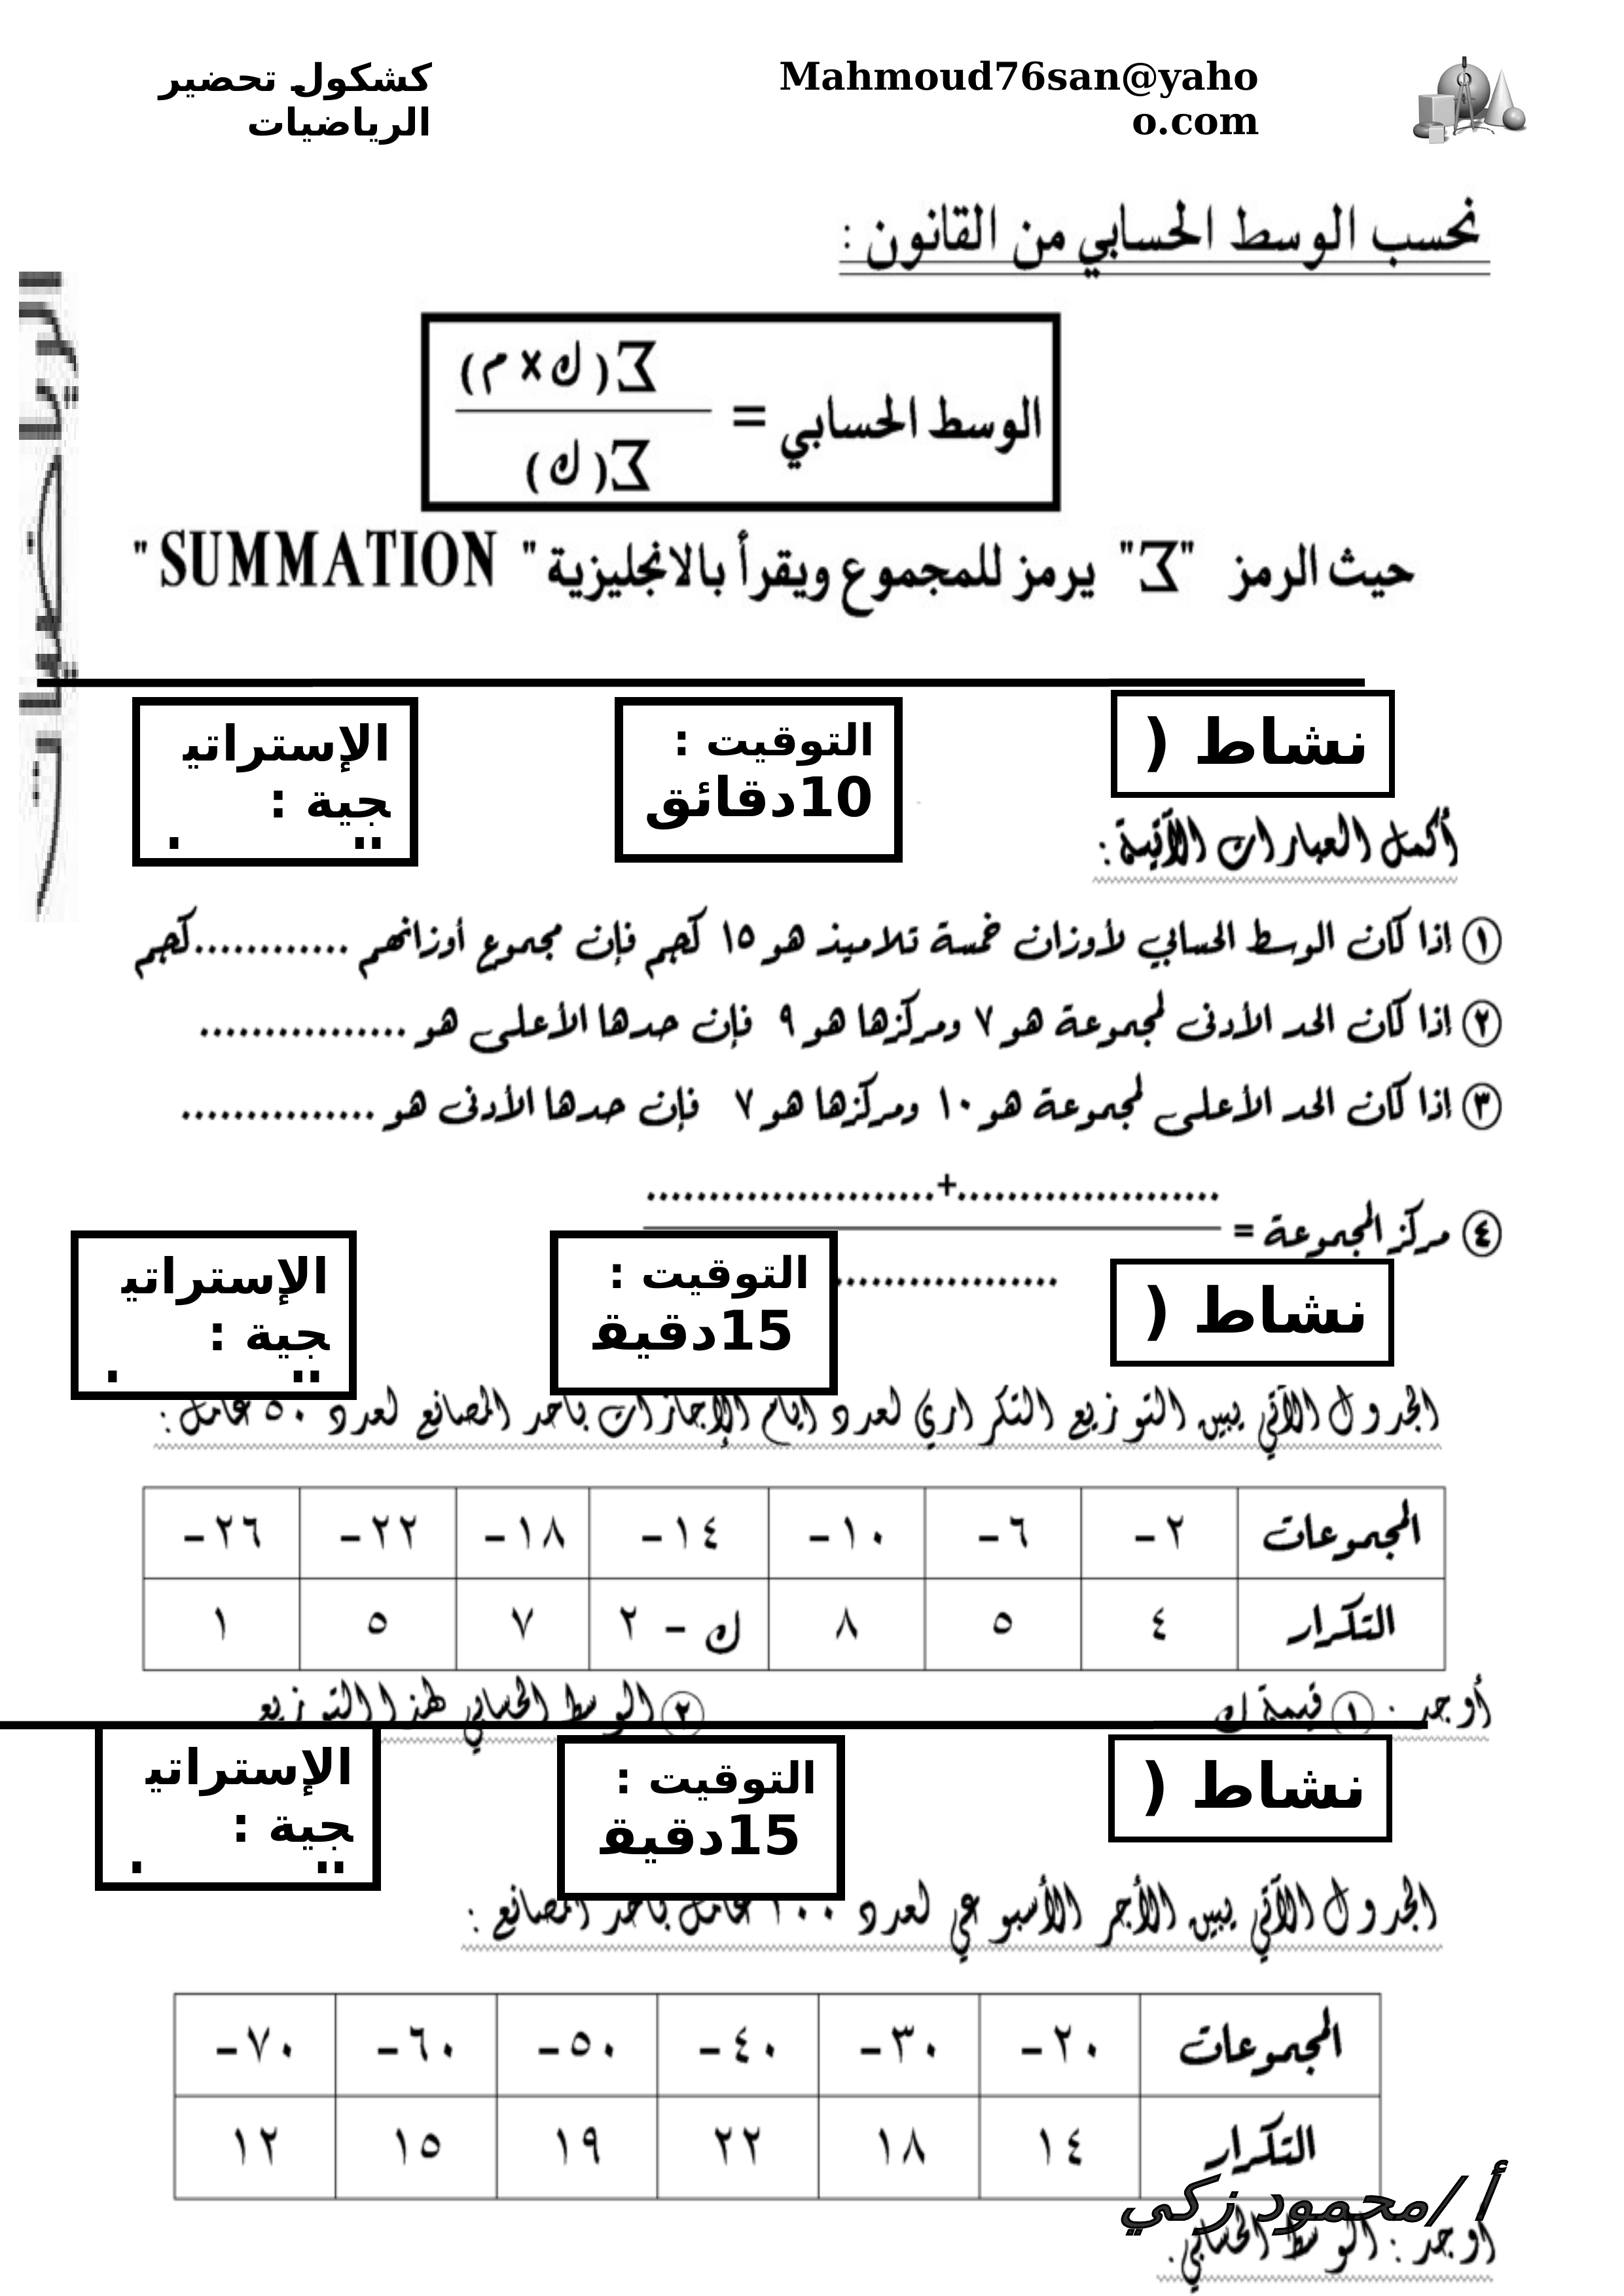 كشكول تحضير
الرياضيات
Mahmoud76san@yaho
o.com
نحسب الوسط الحسابي من القانون :
الوسط الحسابي = ∑( ك × م ) / ∑( ك )
حيث الرمز "∑" يرمز للمجموع ويقرأ بالانجليزية " SUMMATION "
الرياضيات
نشاط (
التوقيت :
10دقائق
الإستراتي
جية :
أكمل العبارات الآتية :
١ إذا كان الوسط الحسابي لأوزان خمسة تلاميذ هو ١٥ كجم فإن مجموع أوزانهم ............كجم
٢ إذا كان الحد الأدنى لمجموعة هو ٧ ومركزها هو ٩ فإن حدها الأعلى هو ................
٣ إذا كان الحد الأعلى لمجموعة هو ١٠ ومركزها هو ٧ فإن حدها الأدنى هو ...............
.....................+.......................
٤ مركز المجموعة =
..................
نشاط (
التوقيت :
15دقيق
الإستراتي
جية :
الجدول الآتي يبين التوزيع التكراري لعدد أيام الإجازات بأحد المصانع لعدد ٥٠ عامل :
المجموعات ٢- ٦- ١٠- ١٤- ١٨- ٢٢- ٢٦-
التكرار ٤ ٥ ٨ ك - ٢ ٧ ٥ ١
أوجد : ١ قيمة ك ٢ الوسط الحسابي لهذا التوزيع
نشاط (
التوقيت :
15دقيق
الإستراتي
جية :
الجدول الآتي يبين الأجر الأسبوعي لعدد ١٠٠ عامل بأحد المصانع :
المجموعات ٢٠- ٣٠- ٤٠- ٥٠- ٦٠- ٧٠-
التكرار ١٤ ١٨ ٢٢ ١٩ ١٥ ١٢
أ /محمود زكي
أوجد : الوسط الحسابي.